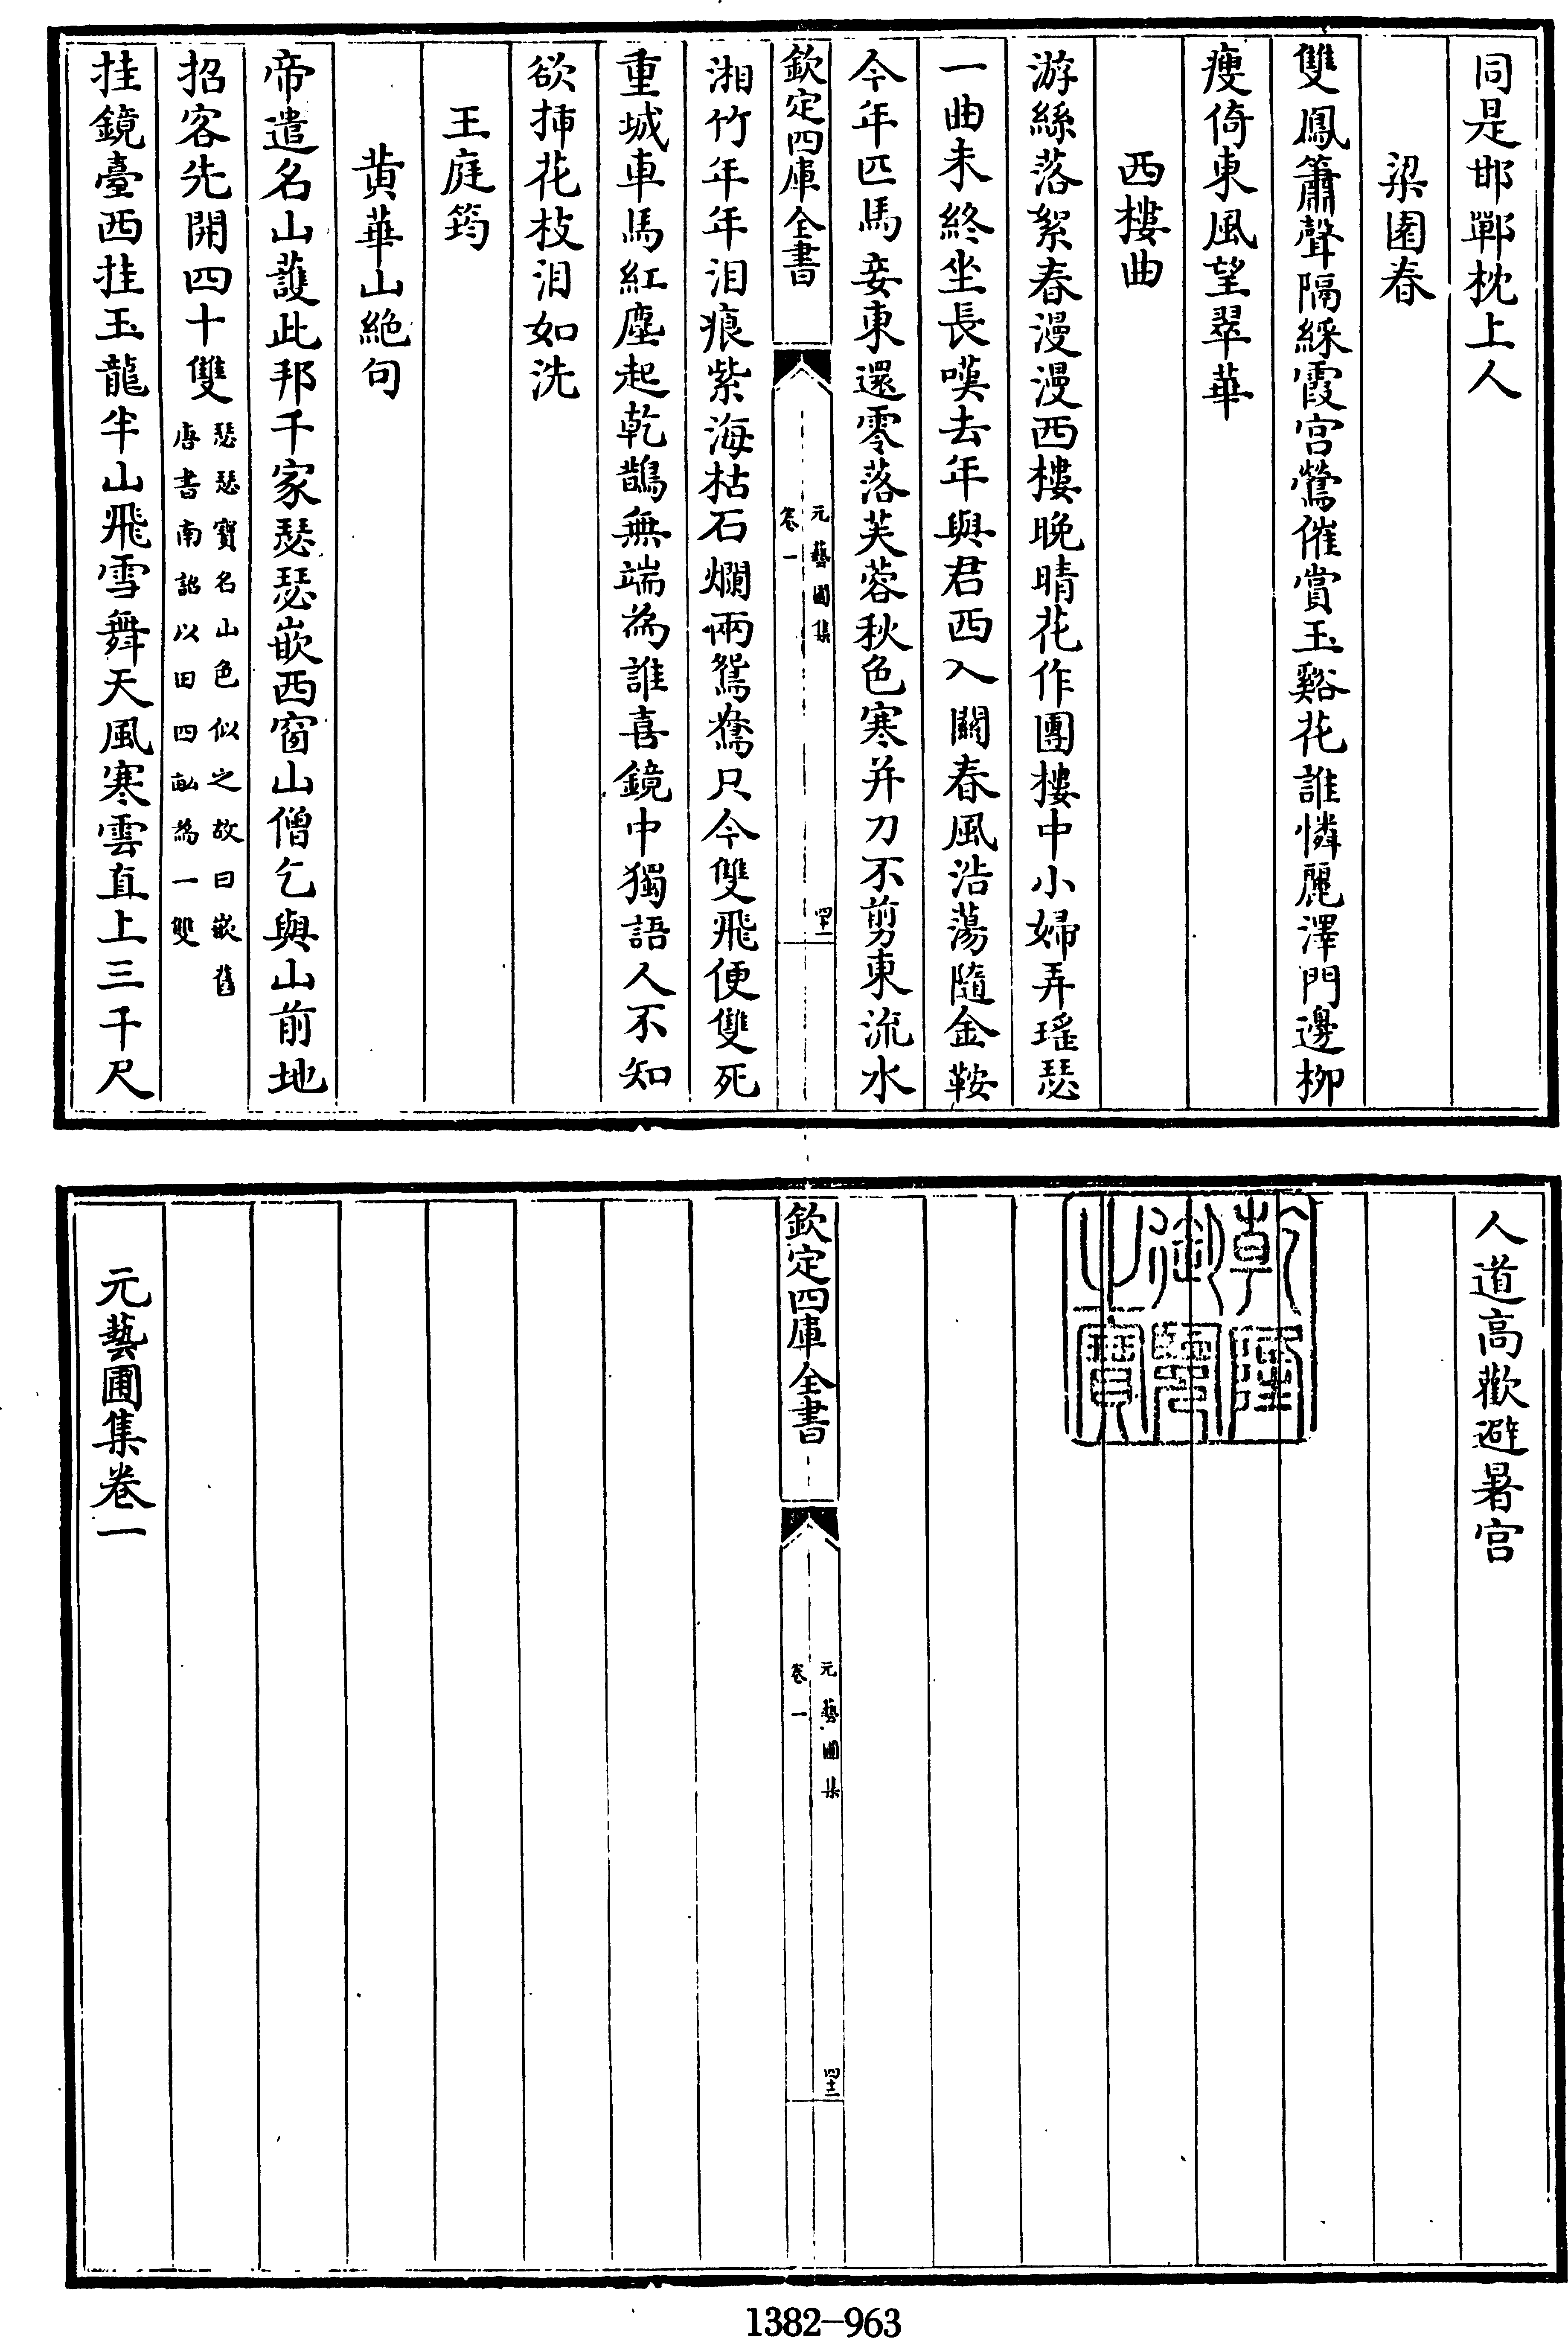 同是邯鄲枕上人
梁園春
雙鳳簫聲隔綵霞宮鶯催賞玉谿花誰憐麗澤門邊柳
瘦倚東風望翠華
西樓曲
游絲落絮春漫漫西樓晚晴花作團樓中小婦弄瑤瑟
一曲未終坐長嘆去年與君西入關春風浩蕩隨金鞍
今年匹馬妾東還零落芙蓉秋色寒并刀不剪東流水
欽定四庫全書
元藝圃集
卷一
四十一
湘竹年年淚痕紫海枯石爛兩鴛鴦只今雙飛便雙死
重城車馬紅塵起乾鵲無端為誰喜鏡中獨語人不知
欲揷花枝淚如洗
王庭筠
黄華山絶句
帝遣名山護此邦千家瑟瑟嵌西窗山僧乞與山前地
招客先開四十雙
瑟瑟寶名山色似之故曰嵌舊
唐書南詔以田四畝為一雙
挂鏡臺西挂玉龍半山飛雪舞天風寒雲直上三千尺
人道高歡避暑宮
乾隆御覽之寶
欽定四庫全書
元藝圃集
卷一
四十二
元藝圃集卷一
1382-963